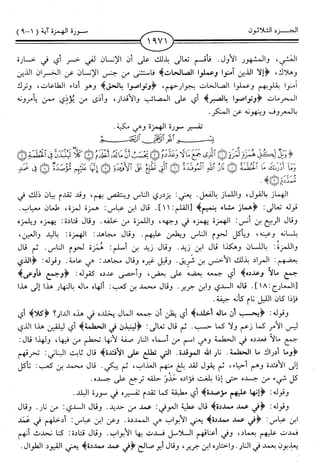 الجـــزء الثـــلاثون
سـورة الهمـزة آية (١-٩)
١٩٧١
العَشيّ، والمشهور الأول. فأقسم تعالى بذلك على أن الإنسان لفي خسر أي في خسارة
وهلاك، ﴿إلا الذين آمنوا وعملوا الصالحات﴾ فاستثنى من جنس الإنسان عن الخسران الذين
آمنوا بقلوبهم وعملوا الصالحات بجوارحهم، ﴿وتواصوا بالحق﴾ وهو أداء الطاعات، وترك
المحرمات ﴿وتواصوا بالصبر﴾ أي على المصائب والأقدار، وأذى من يُؤذي ممن يأمرونه
بالمعروف وينهونه عن المنكر.
تفسير سورة الهمزة وهي مكية.
﴿وَيْلٌ لِكُلِّ هُمَزَةٍ لُمَزَةٍ ۝ الَّذِي جَمَعَ مَالًا وَعَدَّدَهُ ۝ يَحْسَبُ أَنَّ مَالَهُ أَخْلَدَهُ ۝ كَلَّا لَيُنْبَذَنَّ فِي الْحُطَمَةِ ۝
وَمَا أَدْرَاكَ مَا الْحُطَمَةُ ۝ نَارُ اللَّهِ الْمُوقَدَةُ ۝ الَّتِي تَطَّلِعُ عَلَى الْأَفْئِدَةِ ۝ إِنَّهَا عَلَيْهِمْ مُؤْصَدَةٌ ۝ فِي عَمَدٍ
مُمَدَّدَةٍ ۝﴾
الهماز بالقول، واللماز بالفعل. يعني: يزدري الناس وينتقص بهم، وقد تقدم بيان ذلك في
قوله تعالى: ﴿هماز مشاء بنميم﴾ [القلم: ١١]. قال ابن عباس: همزة لمزة، طعان معياب.
وقال الربيع بن أنس: الهمزة يهمزه في وجهه، واللمزة من خلفه. وقال قتادة: يهمزه ويلمزه
بلسانه وعينه، ويأكل لحوم الناس ويطعن عليهم. وقال مجاهد: الهمزة: باليد والعين،
واللمزة: باللسان وهكذا قال ابن زيد. وقال زيد بن أسلم: هُمَزة لحوم الناس. ثم قال
بعضهم: المراد بذلك الأخنس بن شريق. وقيل غيره وقال مجاهد: هي عامة. وقوله: ﴿الذي
جمع مالاً وعدده﴾ أي جمعه بعضه على بعض، وأحصى عدده كقوله: ﴿وجمع فأوعى﴾
[المعارج: ١٨]. قال السدي وابن جرير. وقال محمد بن كعب: ألهاه ماله بالنهار هذا إلى هذا
فإذا كان الليل نام كأنه جيفة.
وقوله: ﴿يحسب أن ماله أخلده﴾ أي يظن أن جمعه المال يخلده في هذه الدار؟ ﴿كلا﴾ أي
ليس الأمر كما زعم ولا كما حسب. ثم قال تعالى: ﴿لينبذن في الحطمة﴾ أي ليلقين هذا الذي
جمع مالاً فعدده في الحطمة وهي اسم من أسماء النار صفة لأنها تحطم من فيها، ولهذا قال:
﴿وما أدراك ما الحطمة. نار الله الموقدة. التي تطلع على الأفئدة﴾ قال ثابت البناني: تحرقهم
إلى الأفئدة وهم أحياء، ثم يقول لقد بلغ منهم العذاب، ثم يبكي. وقال محمد بن كعب: تأكل
كل شيء من جسده حتى إذا بلغت فؤاده حذو حلقه ترجع على جسده.
وقوله: ﴿إنها عليهم مؤصدة﴾ أي مطبقة كما تقدم تفسيره في سورة البلد.
وقوله: ﴿في عمد ممددة﴾ قال عطية العوفي: عمد من حديد. وقال السدي: من نار. وقال
ابن عباس: ﴿في عمد ممددة﴾ يعني الأبواب هي الممددة. وعن ابن عباس: أدخلهم في عُمد
فمدت عليهم بعماد، وفي أعناقهم السلاسل فسدت بها الأبواب. وقال قتادة: كنا نحدث أنهم
يعذبون بعمد في النار. واختاره ابن جرير، وقال أبو صالح ﴿في عمد ممددة﴾ يعني القيود الطوال.